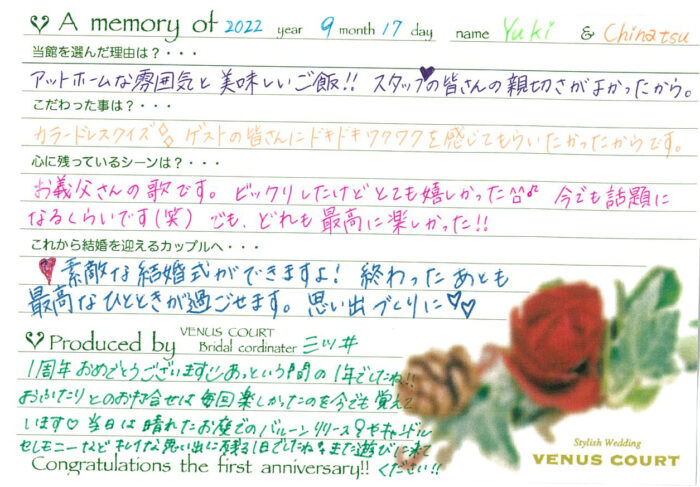 A memory of 2022 year 9 month 17 day name Yuki & Chinatsu
当館を選んだ理由は?・・・
アットホームな雰囲気と美味しいご飯!! スタッフの皆さんの親切さがよかったから。
こだわった事は?・・・
カラードレスクイズ ゲストの皆さんにドキドキワクワクを感じてもらいたかったからです。
心に残っているシーンは?・・・
お義父さんの歌です。 ビックリしたけどとても嬉しかった♪ 今でも話題に
なるくらいです(笑) でも、どれも最高に楽しかった!!
これから結婚を迎えるカップルへ・・・
♥素敵な結婚式ができますよ! 終わったあとも
最高なひとときが過ごせます。 思い出づくりに♡♡
Produced by VENUS COURT Bridal cordinater 三ツ井
1周年おめでとうございます あっという間の1年でしたね!!
おふたりとのお打合せは毎回楽しかったのを今でも覚えて
います♡ 当日は晴れたお庭でのバルーンリリースやキャンドル
セレモニーなどキレイな思い出に残る1日でしたね。また遊びに来て
Congratulations the first anniversary!! ください!!
Stylish Wedding
VENUS COURT